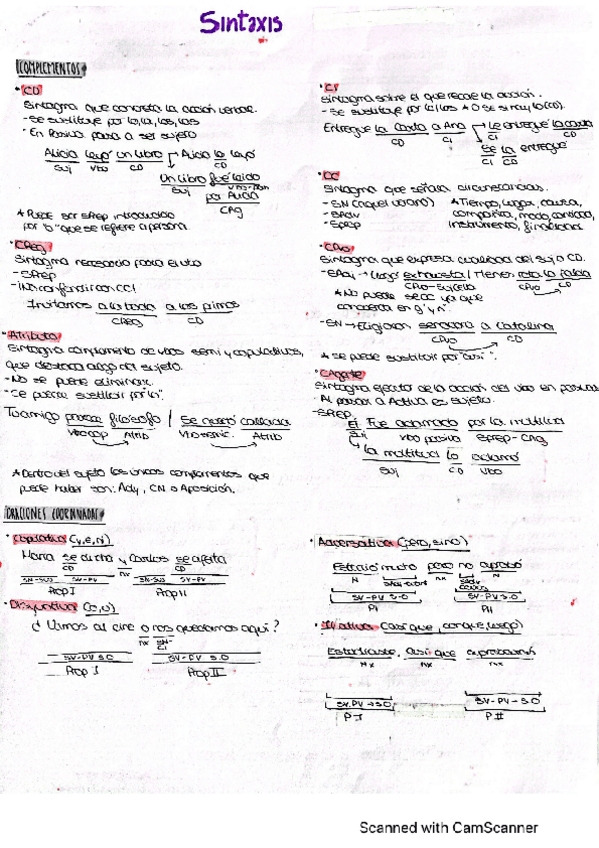 Sintaxis
COMPLEMENTOS
· CD
Sintagma que concreta la acción verbal.
- Se sustituye por lo, la, los, las
· En Pasiva pasa a ser sujeto
Alicia leyó un libro → Alicia lo leyó
Suj Vbo CD CD
un libro fue leído
Suj
por Alicia
CAg
* Puede ser SPrep introducido
por "a" que se refiere a persona.
· CReg
Sintagma necesario para el vbo
- SPrep
Invitamos a la boda a los primos
CReg CD
· Atributo
Sintagma complemento de vbos semi y copulativos,
que destaca algo del sujeto.
- No se puede eliminar.
- Se puede sustituir por "lo".
Tu amigo parece filósofo / Se quedó callada
Vbo cop Atrib Atrib
* Dentro del sujeto los únicos complementos que
puede haber son: Ady, CN o Aposición.
· CI
Sintagma sobre el que recae la acción.
- Se sustituye por le, les
Entregué la carta a Ana → Le entregué la carta
CD CI CI CD
Se la entregué
CI CD
· CC
Sintagma que señala circunstancias.
- SN
- SAdv
- SPrep
* Tiempo, lugar, causa,
compañía, modo, cantidad,
instrumento, finalidad
· CPvo
Sintagma que expresa cualidad del suj o CD.
- SAdj → Llegó exhausta / Menor rota la falda
CPvo-Sujeto CPvo CD
* No puede ser CC ya que
concuerda en g y n.
- SN → Eligieron senadora a Catalina
CPvo CD
* Se puede sustituir por "así".
· CAgente
Sintagma efector de la acción del vbo en pasiva
- Al pasar a Activa es sujeto.
- SPrep
Él fue aclamado por la multitud
Suj Vbo pasiva SPREP-CAg
La multitud lo aclamó
Suj CD Vbo
ORACIONES COORDINADAS
· Copulativa (y, e, ni)
María se ducha y Carlos se afeita
CD nx CD
SN-SUJ SV-PV SN-SUJ SV-PV
Prop I Prop II
· Disyuntiva (o, u)
¿Vamos al cine o nos quedamos aquí?
nx
SV-PV S.O SV-PV S.O
Prop I Prop II
· Adversativa (pero, sino)
Estudió mucho pero no aprobó
N nx N
SV-PV S.O SV-PV S.O
PI PII
· Ilativa (así que, conque, luego)
Estudiaste, así que aprobarás
nx
SV-PV-S.O SV-PV-S.O
P I P II
Scanned with CamScanner